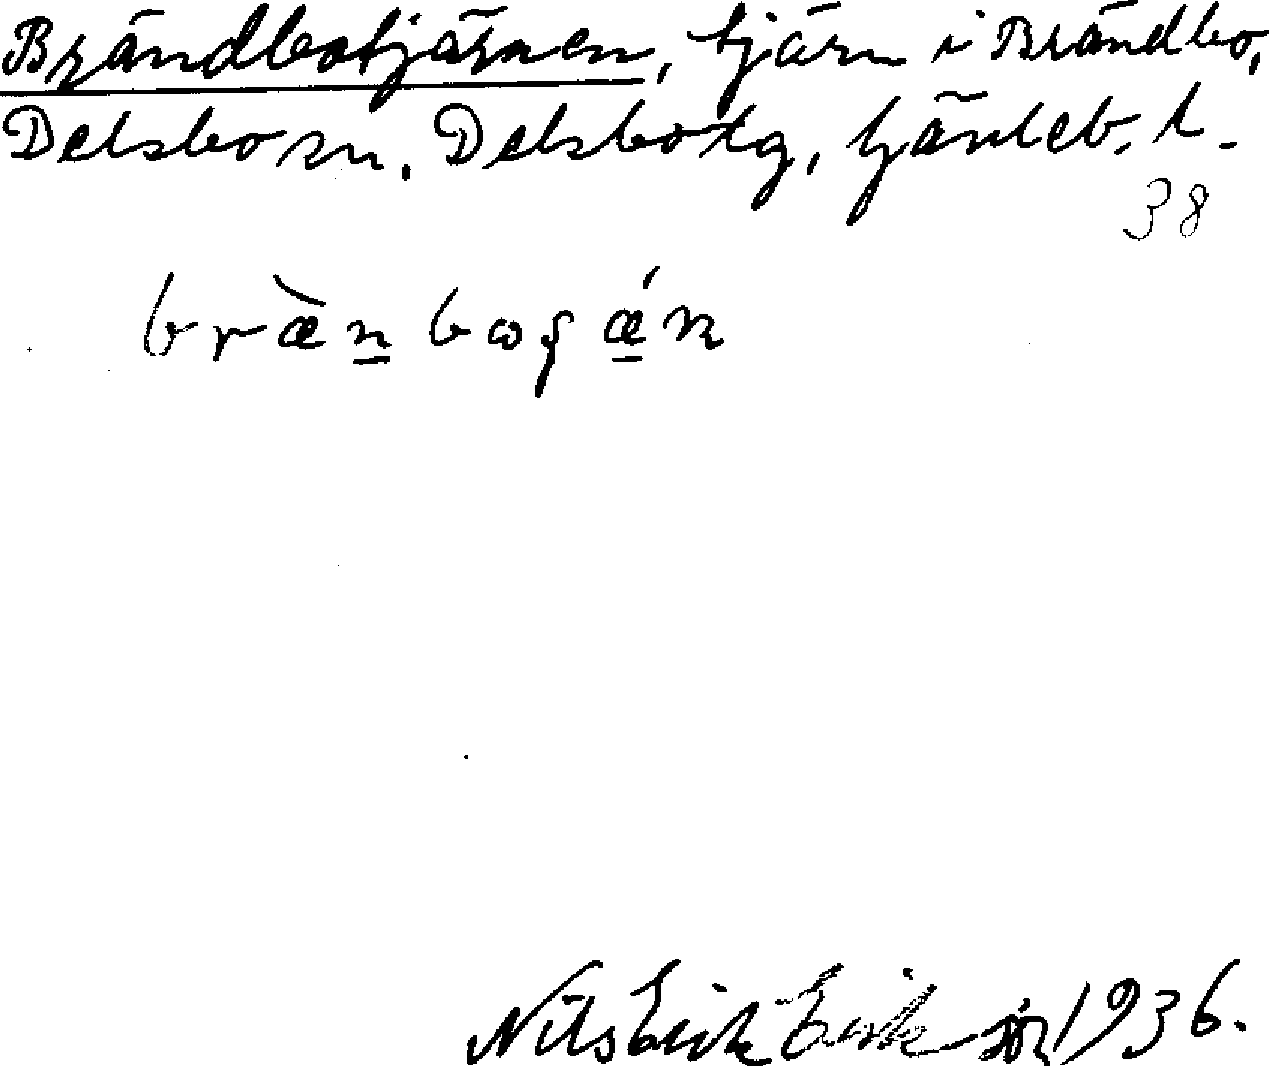 Brändbotjärnen, tjärn i Brändbo,
Delsbo sn. Delsbo tg, Gävleb. l.
38
bræ̀n̲boʂǽ̲n
Nils Erik Eriksson 1936.